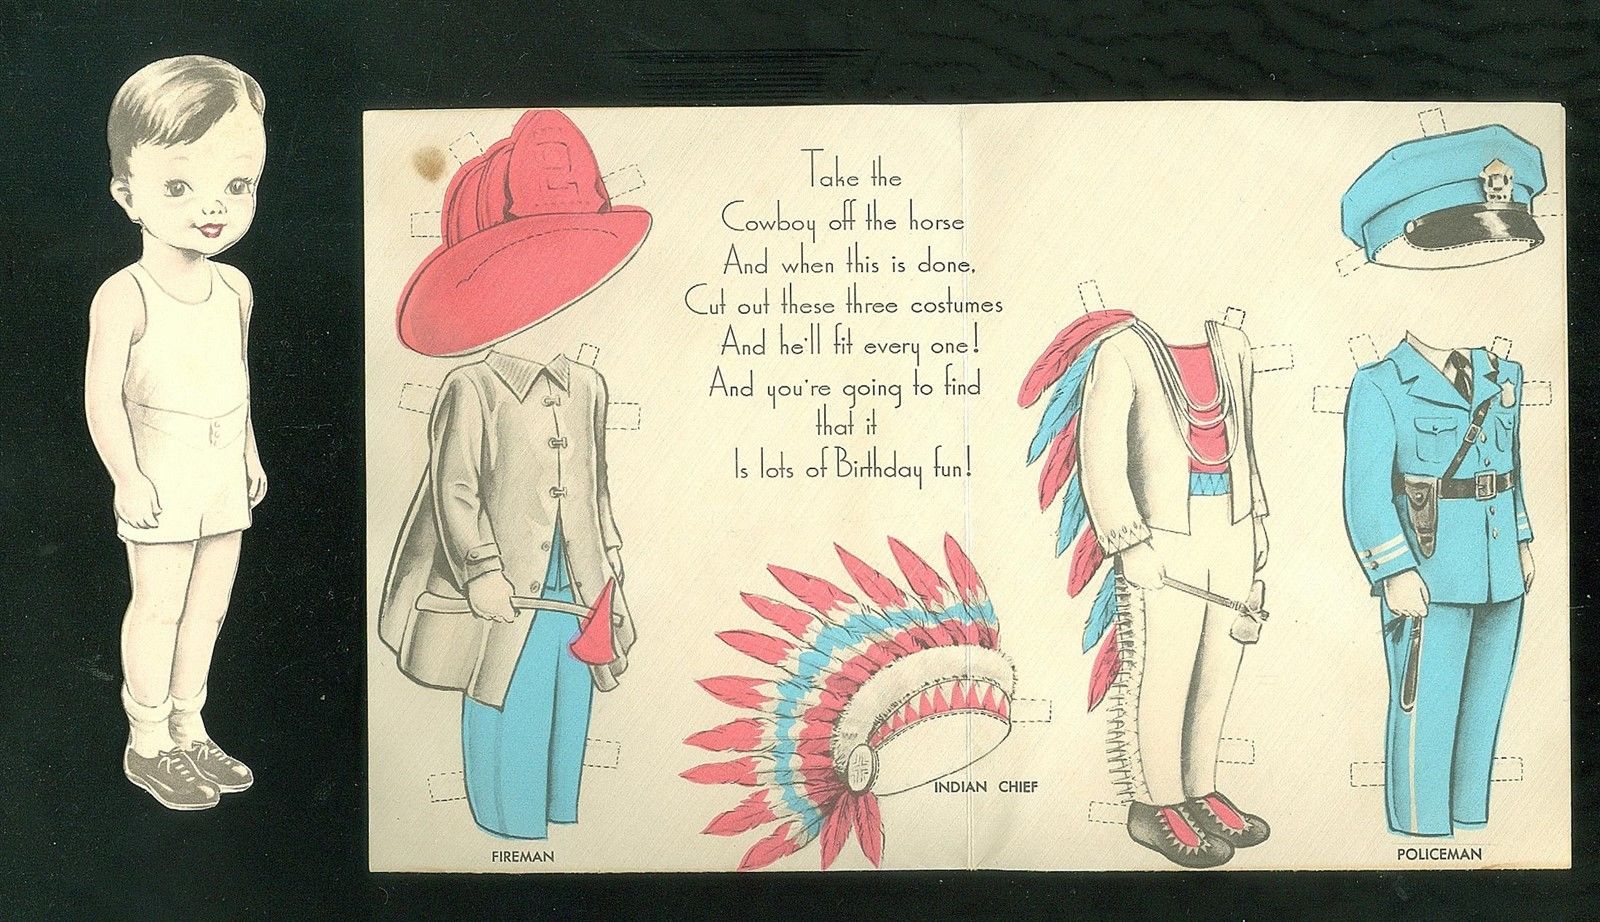 Take the
Cowboy off the horse
And when this is done,
Cut out these three costumes
And he'll fit every one!
And you're going to find
that it
Is lots of Birthday fun!
INDIAN CHIEF
FIREMAN
POLICEMAN